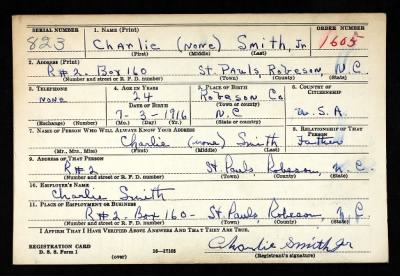 SERIAL NUMBER 1. NAME (Print) ORDER NUMBER
823 Charlie (none) Smith, Jr 1605
(First) (Middle) (Last)
2. ADDRESS (Print)
R#2. Box 160 St. Pauls, Robeson, N.C.
(Number and street or R. F. D. number) (Town) (County) (State)
3. TELEPHONE 4. AGE IN YEARS 5. PLACE OF BIRTH 6. COUNTRY OF CITIZENSHIP
none 24 Robeson Co
DATE OF BIRTH (Town or county)
7-3-1916 N.C U.S.A.
(Exchange) (Number) (Mo.) (Day) (Yr.) (State or country)
7. NAME OF PERSON WHO WILL ALWAYS KNOW YOUR ADDRESS 8. RELATIONSHIP OF THAT PERSON
Charlie (none) Smith Father
(Mr., Mrs., Miss) (First) (Middle) (Last)
9. ADDRESS OF THAT PERSON
R#2 St. Pauls, Robeson, N. C.
(Number and street or R. F. D. number) (Town) (County) (State)
10. EMPLOYER'S NAME
Charlie Smith
11. PLACE OF EMPLOYMENT OR BUSINESS
R#2. Box 160- St. Pauls, Robeson, N.C.
(Number and street or R. F. D. number) (Town) (County) (State)
I AFFIRM THAT I HAVE VERIFIED ABOVE ANSWERS AND THAT THEY ARE TRUE.
REGISTRATION CARD
D. S. S. Form 1 (over) 16-17105 Charlie Smith Jr
(Registrant's signature)